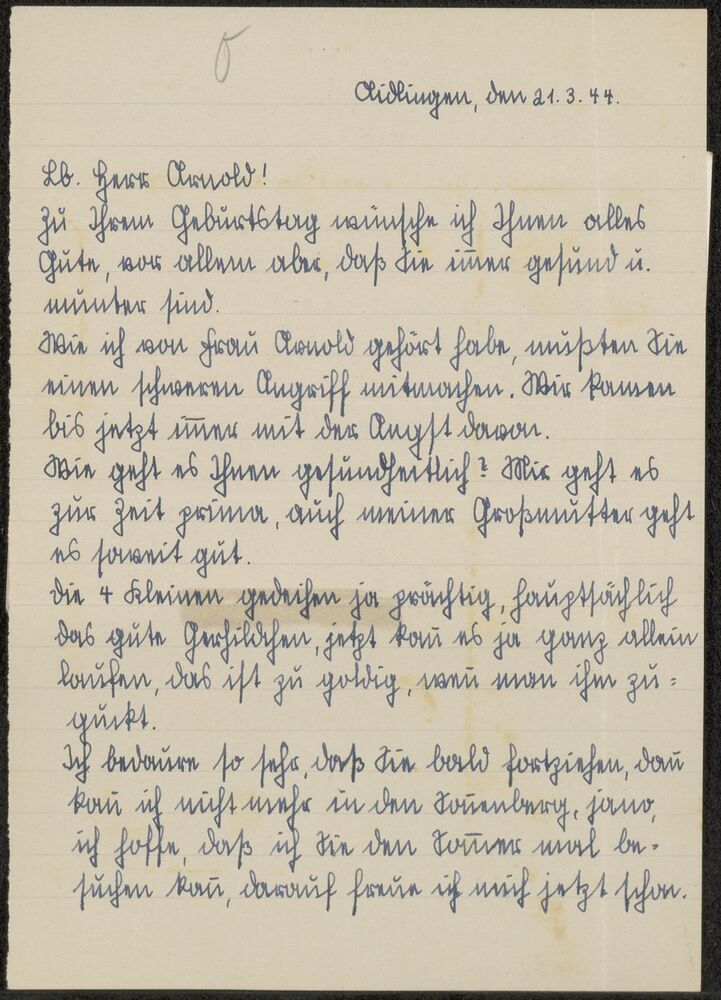 Aidlingen, den 21.3.44.
Lb. Herr Arnold!
Zu Ihrem Geburtstag wünsche ich Ihnen alles
Gute, vor allem aber, daß Sie im̄er gesund u.
munter sind.
Wie ich von Frau Arnold gehört habe, mußten Sie
einen schweren Angriff mitmachen. Wir kamen
bis jetzt im̄er mit der Angst davon.
Wie geht es Ihnen gesundheitlich? Mir geht es
zur Zeit prima, auch meiner Großmutter geht
es soweit gut.
Die 4 Kleinen gedeihen ja prächtig, hauptsächlich
das gute Gerhildchen, jetzt kan̄ es ja ganz allein
laufen, das ist zu goldig, wen̄ man ihm zu=
guckt.
Ich bedaure so sehr, daß Sie bald fortziehen, dan̄
kan̄ ich nicht mehr in den Son̄enberg, jano,
ich hoffe, daß ich Sie den Som̄er mal be-
suchen kan̄, darauf freue ich mich jetzt schon.